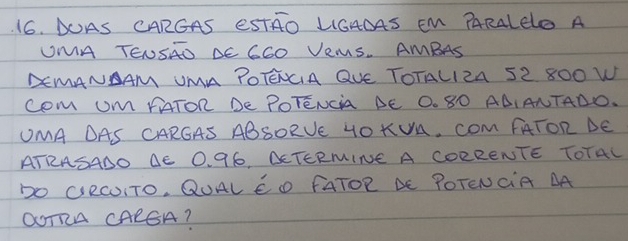 16. DUAS CARGAS ESTÃO LIGADAS EM PARALELO A
UMA TENSÃO DE 660 Vems. AMBAS
DEMANDAM UMA POTÊNCIA QUE TOTALIZA 52 800 W
COM UM FATOR DE POTÊNCIA DE 0.80 ADIANTADO.
UMA DAS CARGAS ABSORVE 40 KVA. COM FATOR DE
ATRASADO DE 0.96. DETERMINE A CORRENTE TOTAL
DO CIRCUITO. QUAL É O FATOR DE POTENCIA DA
OUTRA CARGA?